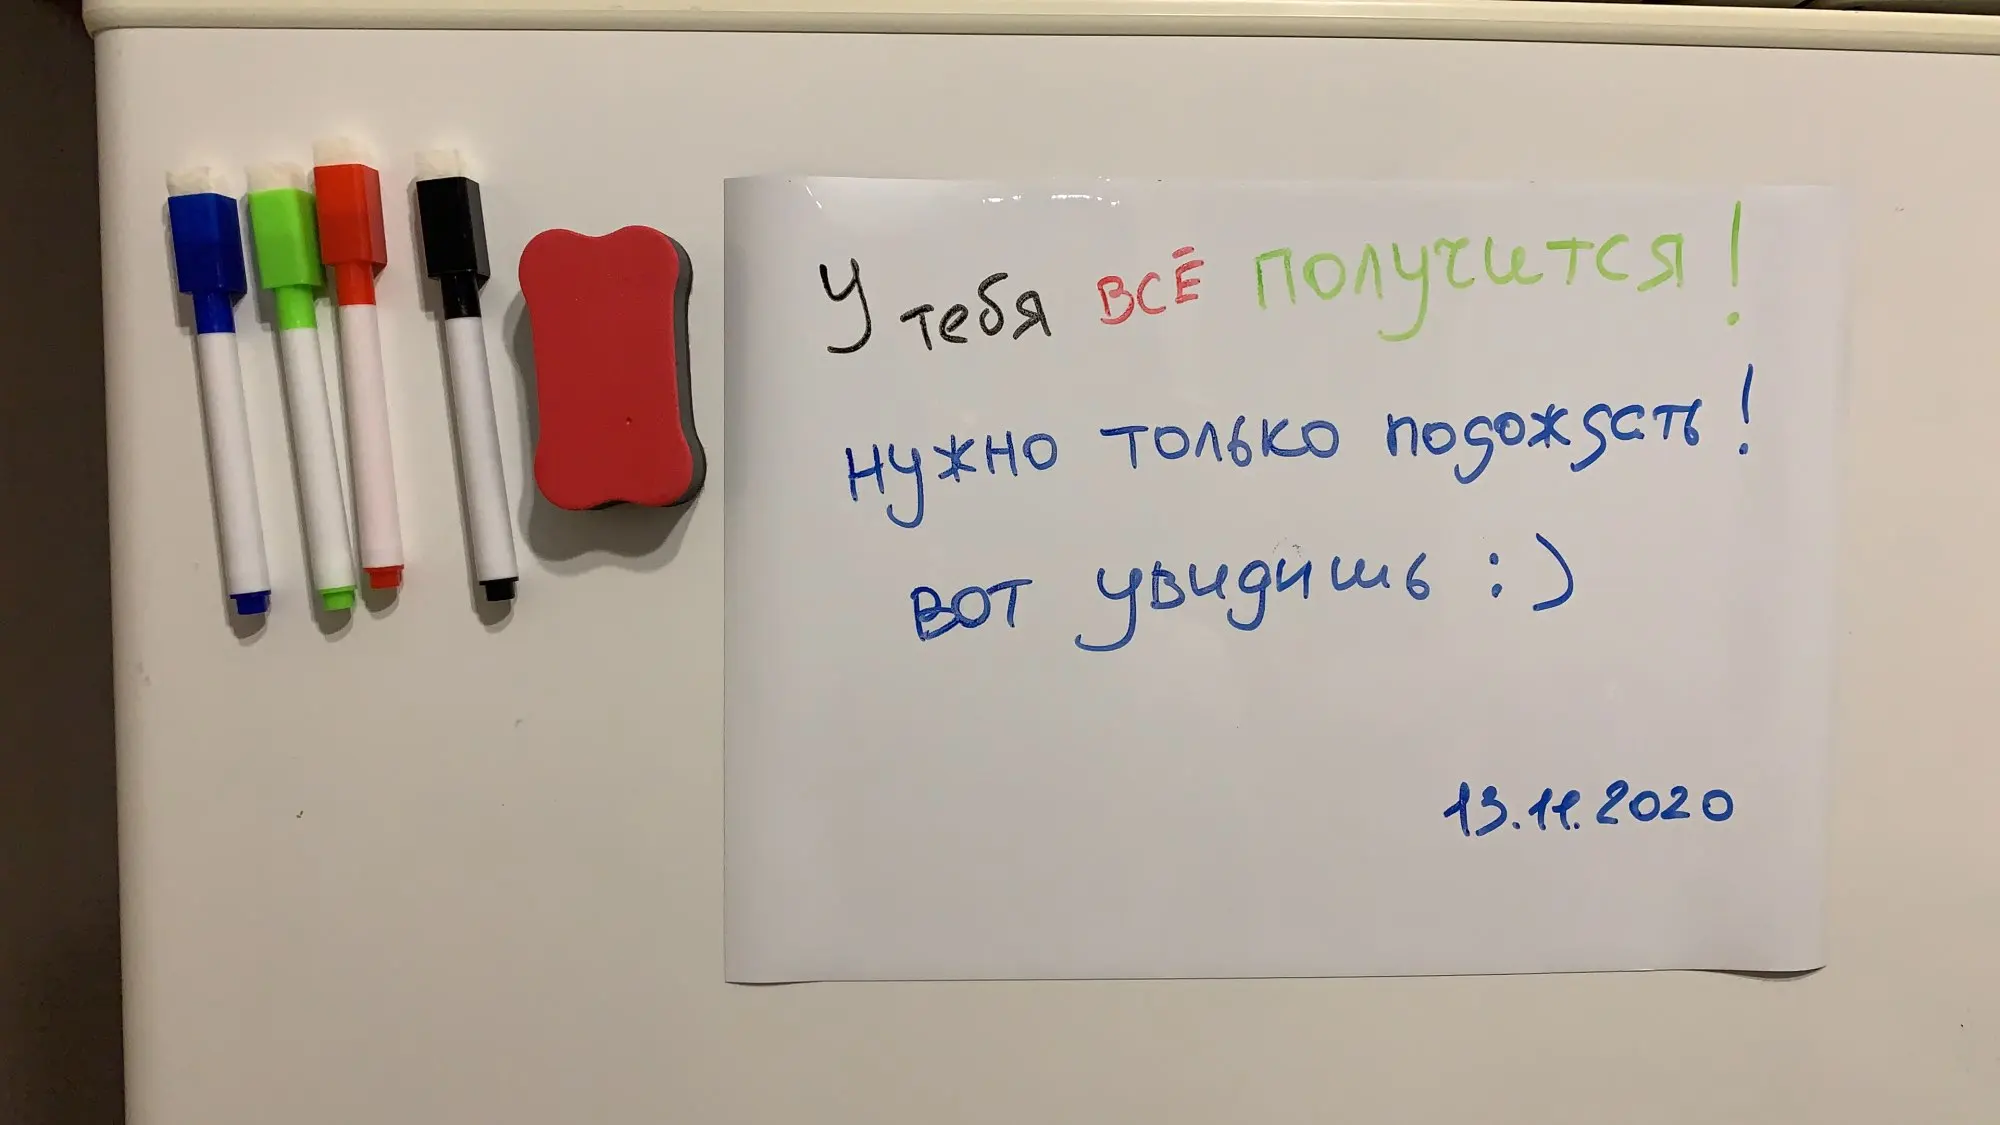 У тебя всё получится!
нужно только подождать!
вот увидишь :)
13.11.2020